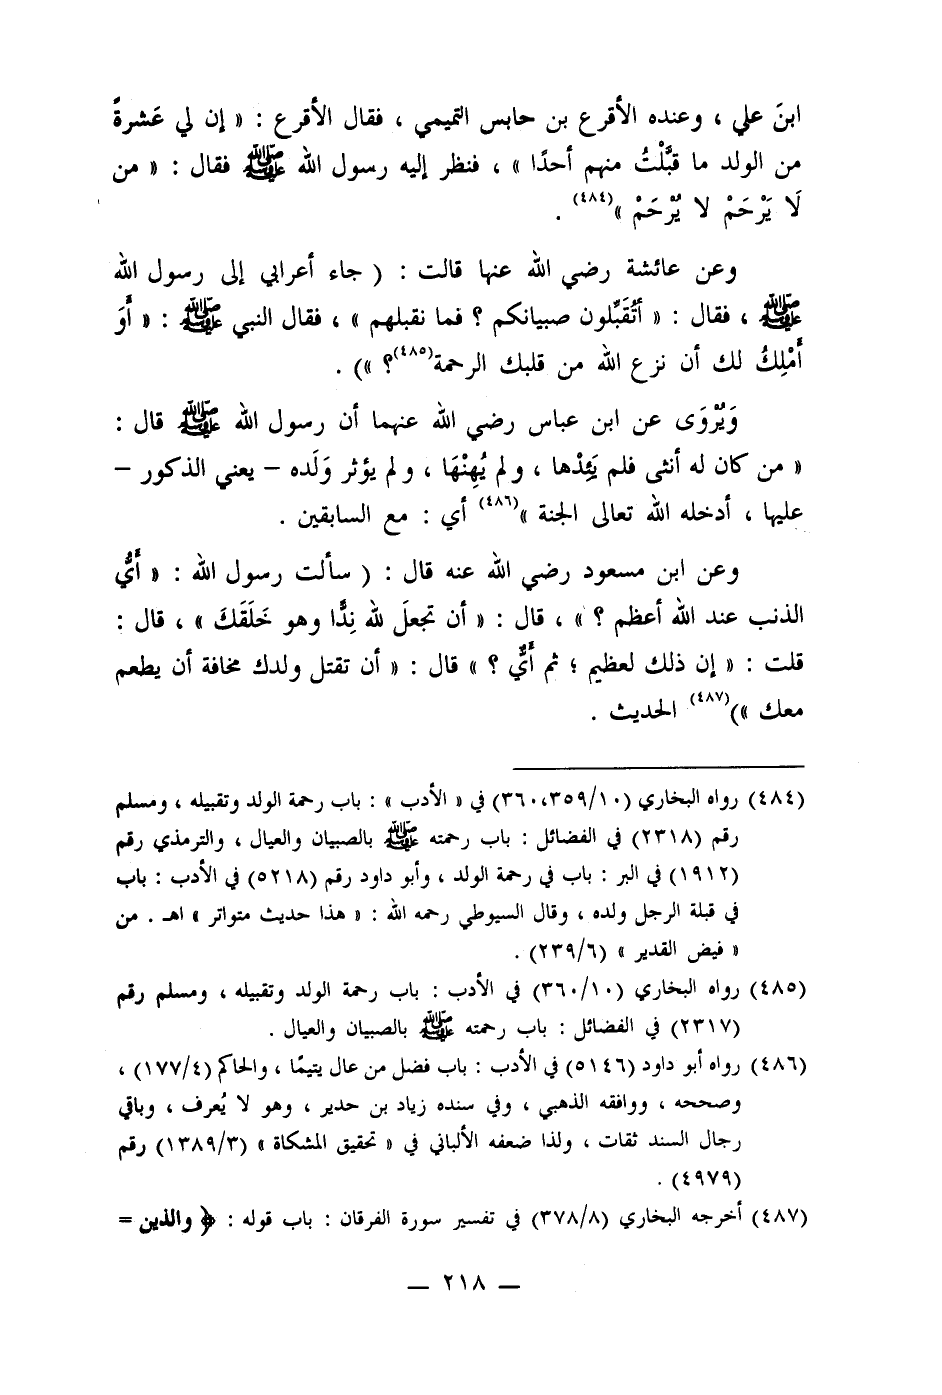 ابنَ علي ، وعنده الأقرع بن حابس التميمي ، فقال الأقرع : « إن لي عَشرةً
من الولد ما قبَّلْتُ منهم أحدًا » ، فنظر إليه رسول الله ﷺ فقال : « من
لَا يَرْحَمْ لا يُرْحَمْ »(٤٨٤) .
وعن عائشة رضي الله عنها قالت : ( جاء أعرابي إلى رسول الله
ﷺ ، فقال : « أتُقَبِّلون صبيانكم ؟ فما نقبلهم » ، فقال النبي ﷺ : « أَوَ
أَمْلِكُ لك أن نزع الله من قلبك الرحمة(٤٨٥)؟ ») .
وَيُرْوَى عن ابن عباس رضي الله عنهما أن رسول الله ﷺ قال :
« من كان له أنثى فلم يَئِدْها ، ولم يُهِنْهَا ، ولم يؤثر وَلَده – يعني الذكور –
عليها ، أدخله الله تعالى الجنة »(٤٨٦) أي : مع السابقين .
وعن ابن مسعود رضي الله عنه قال : ( سألت رسول الله : « أَيُّ
الذنب عند الله أعظم ؟ » ، قال : « أن تجعلَ لله نِدًّا وهو خَلَقَكَ » ، قال :
قلت : « إن ذلك لعظيم ؛ ثم أَيٌّ ؟ » قال : « أن تقتل ولدك مخافة أن يطعم
معك »)(٤٨٧) الحديث .
(٤٨٤) رواه البخاري (٣٦٠،٣٥٩/١٠) في « الأدب » : باب رحمة الولد وتقبيله ، ومسلم
رقم (٢٣١٨) في الفضائل : باب رحمته ﷺ بالصبيان والعيال ، والترمذي رقم
(١٩١٢) في البر : باب في رحمة الولد ، وأبو داود رقم (٥٢١٨) في الأدب : باب
في قبلة الرجل ولده ، وقال السيوطي رحمه الله : « هذا حديث متواتر » اهـ . من
« فيض القدير » (٢٣٩/٦) .
(٤٨٥) رواه البخاري (٣٦٠/١٠) في الأدب : باب رحمة الولد وتقبيله ، ومسلم رقم
(٢٣١٧) في الفضائل : باب رحمته ﷺ بالصبيان والعيال .
(٤٨٦) رواه أبو داود (٥١٤٦) في الأدب : باب فضل من عال يتيمًا ، والحاكم (١٧٧/٤) ،
وصححه ، ووافقه الذهبي ، وفي سنده زياد بن حدير ، وهو لا يُعرف ، وباقي
رجال السند ثقات ، ولذا ضعفه الألباني في « تحقيق المشكاة » (١٣٨٩/٣) رقم
(٤٩٧٩) .
(٤٨٧) أخرجه البخاري (٣٧٨/٨) في تفسير سورة الفرقان : باب قوله : ﴿ والذين =
— ٢١٨ —